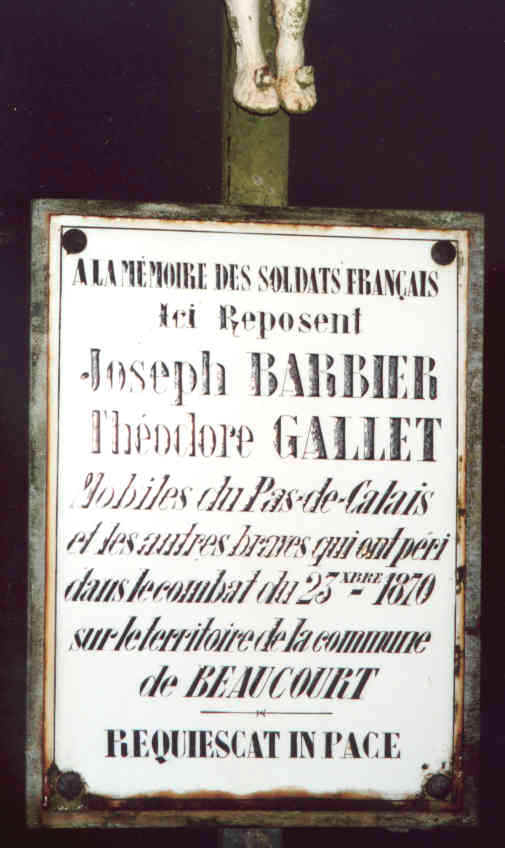 A LA MÉMOIRE DES SOLDATS FRANÇAIS
Ici Reposent
Joseph BARBIER
Théodore GALLET
Mobiles du Pas-de-Calais
et les autres braves qui ont péri
dans le combat du 23 XBRE 1870
sur le territoire de la commune
de BEAUCOURT
REQUIESCAT IN PACE